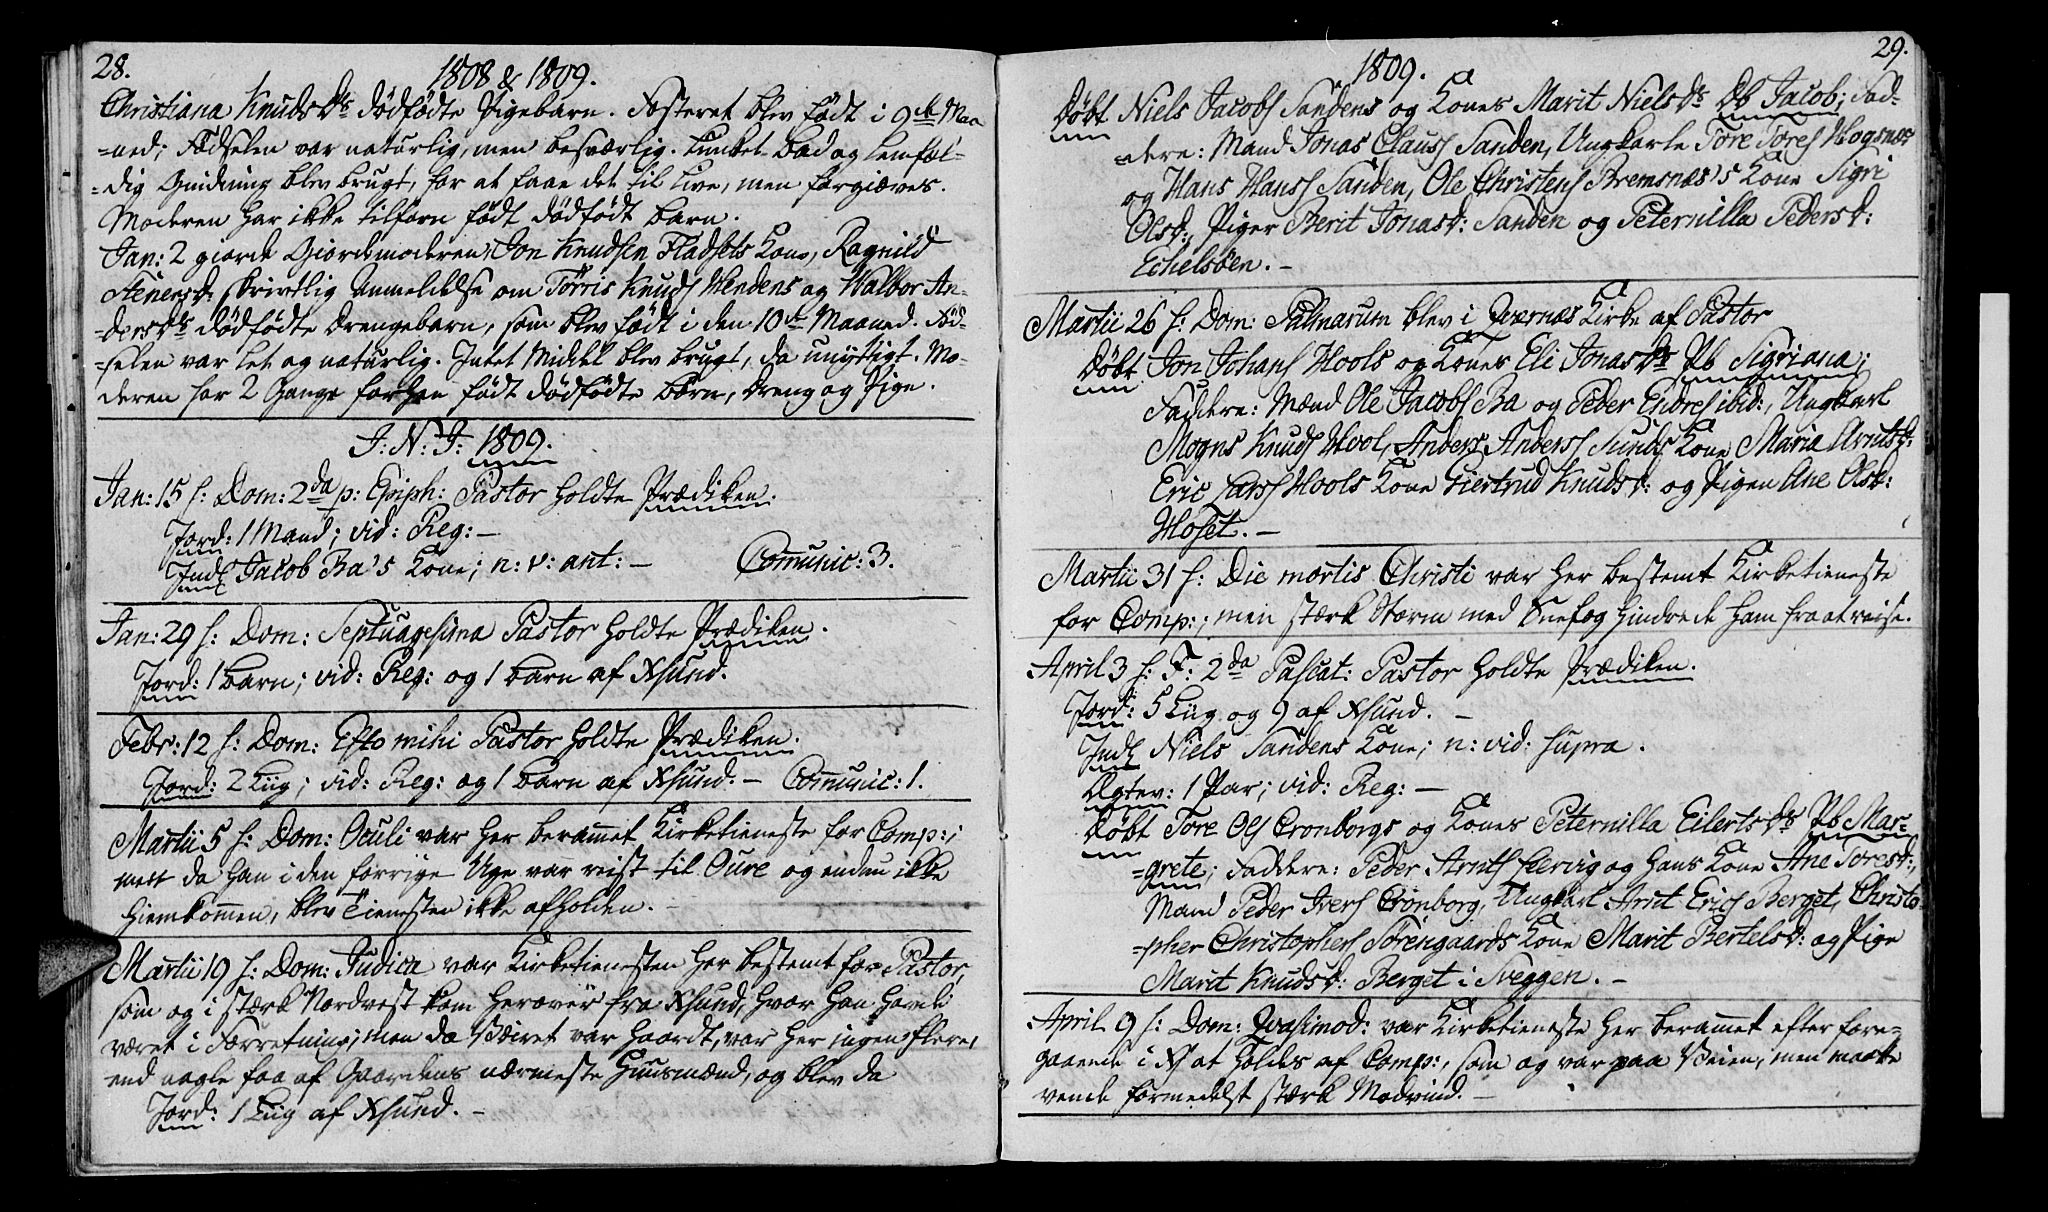 28.
1808 & 1809.
Christiana KnudsDr dödfödte Pigebarn. Fosteret blev födt i 9de Maa
=ned; Födselen var naturlig, men besværlig. Lunket Bad og lemfæl=
=dig Gnidning blev brugt, for at faae det til Live, men forgiæves.
Moderen har ikke tilforn födt dödfödt barn.
Jan: 2 giorde Giordemoderen, Jon Knudsen Fladsets Kone, Ragnild
StenersD: skrivtlig Anmeldelse om Törris Knuds Hendens og Walbor An=
=dersDrs dödfödte Drengebarn, som blev födt i den 10de Maaned. Föd=
=selen var let og naturlig. Intet Middel blev brugt, da unyttigt. Mo=
deren har 2 Gange forhen födt dödfödte börn, Dreng og Pige.
J: N: J: 1809.
Jan: 15 s: Dom: 2da p: Epiph: Pastor holdte Prædiken.
Jord: 1 Mand; vid: Reg: —
Indl Jacob Ba's Kone; n: v: ant: — Comunic: 3.
Jan: 29 s: Dom: Septuagesima Pastor holdte Prædiken.
Jord: 1 barn; vid: Reg: og 1 barn af Xsund.
Febr: 12 s: Dom: Esto mihi Pastor holdte Prædiken.
Jord: 2 Liig; vid: Reg: og 1 barn af Xsund. — Communic: 1.
Martii 5 s: Dom: Oculi var her berammet Kirketieneste for Comp:;
men da han i den forrige Uge var reist til Oure og endnu ikke
hiemkommen, blev Tienesten ikke afholden. —
Martii 19 s: Dom: Judica var Kirketienesten her bestemt for Pastor,
som og i stærk Nordvest kom herover fra Xsund, hvor han havde
været i Forretning; men da Veiret var haardt, var her ingen flere,
end nogle faa af Gaardens nærmeste Huusmænd, og blev da
Jord: 1 Liig af Xsund. —
29.
1809.
Döbt Niels Jacobs Sandens og Kones Marit NielsDr Db Jacob; Fad=
=dere: Mand Jonas Clauss Sanden, Ungkarle Tore Tores Hogsnæs
og Hans Hanss Sanden, Ole Christens Bremsnæs's Kone Sigri
OlsD:, Piger Berit JonasD: Sanden og Peternilla PedersD:
Echelsöen. —
Martii 26 s: Dom: Palmarum blev i Qværnæs Kirke af Pastor
Döbt Jon Johans Hools og Kones Eli JonasDr Pb Sigriana;
Faddere: Mænd Ole Jacobs Ba og Peder Endres ibid:, Ungkarl
Mogns Knuds Hool, Anders Anderss Sunds Kone Maria ArntsD:
Eric Larss Hools Kone Giertrud KnudsD: og Pigen Ane OlsD:
Moset. —
Martii 31 s: Die mortis Christi var her bestemt Kirketieneste
for Comp:; men stærk Storm med Snefog hindrede ham fra at reise.
April 3 s: F: 2da Pascat: Pastor holdte Prædiken.
Jord: 5 Liig og 9 af Xsund. —
Indl Niels Sandens Kone; n: vid: supra.
Ægtev: 1 Par; vid: Reg: —
Döbt Tore Ols Cronborgs og Kones Peternilla EilertsDr Pb Mar=
=grete; Faddere: Peder Arnts Hervig og hans Kone Ane ToresD:,
Mand Peder Ivers Cronborg, Ungkarl Arnt Erics Berget, Christo=
=pher Christophers Sörengaards Kone Marit BertelsD: og Pige
Marit KnudsD: Berget i Sveggen. —
April 9 s: Dom: Qvasimod: var Kirketieneste her berammet efter fore=
gaaende i X at holdes af Comp:, som og var paa Veien, men maatte
vende formedelst stærk Modvind. —